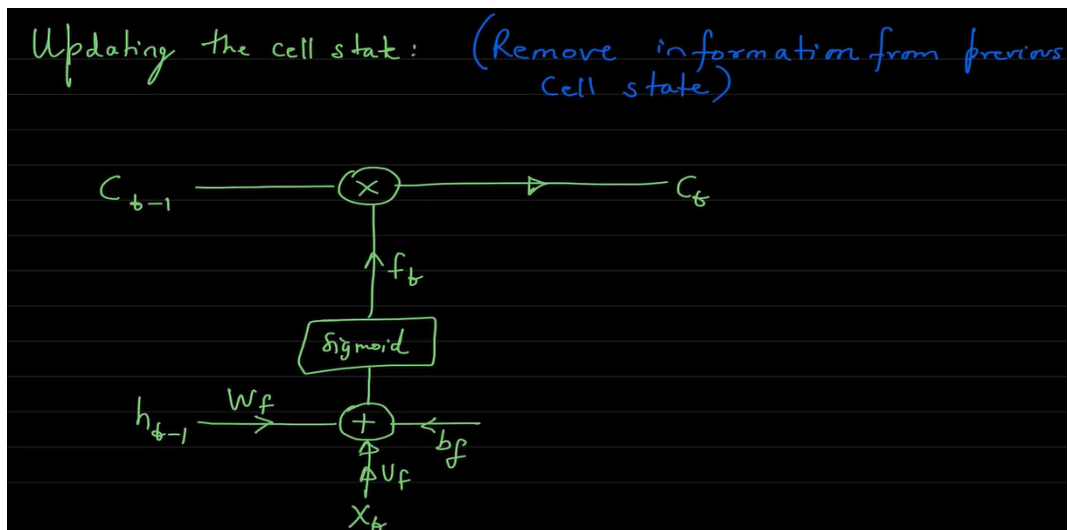 Updating the cell state: (Remove information from previous
cell state)
C t-1
×
C t
f t
Sigmoid
W f
h t-1
+
b f
U f
X t